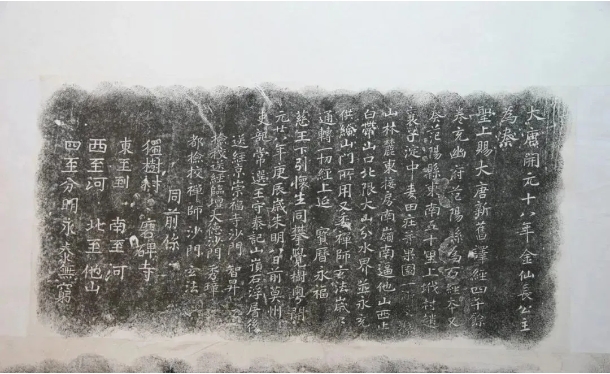 大唐開元十八年金仙長公主
為奏
聖上賜大唐新舊譯經四千餘
卷充幽府范陽縣為石經本又
奏范陽縣東南五十里上垡村趙
襄子淀中麦田莊并果園一所
山林麓東接房南嶺南逼他山西止
白帶山口北限大山分水界並永充
供給山門所用又委禪師玄法歲
通轉一切經上延寶曆永福
慈王下引懷生同攀覺樹
元廿八年庚辰歲朱明八日前莫州
吏部常選王守泰記山頂石浮屠後
送經京崇福寺沙門智昇
檢校送經臨壇大德沙門秀璋
都檢校禪師沙門玄法
同前係
獨樹村 磨碑寺
東至到 南至河
西至河 北至他山
四至分明永泰無窮